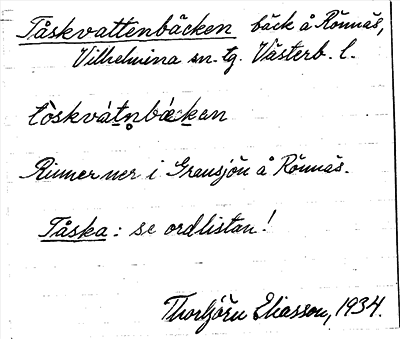 Tåskvattenbäcken bäck å Rönnäs,
Vilhelmina sn. tg. Västerb. l.
tòskvátn̥bæ̀kən
Rinner ner i Gransjön å Rönnäs.
Tåska: se ordlistan!
Thorbjörn Eliasson, 1934.